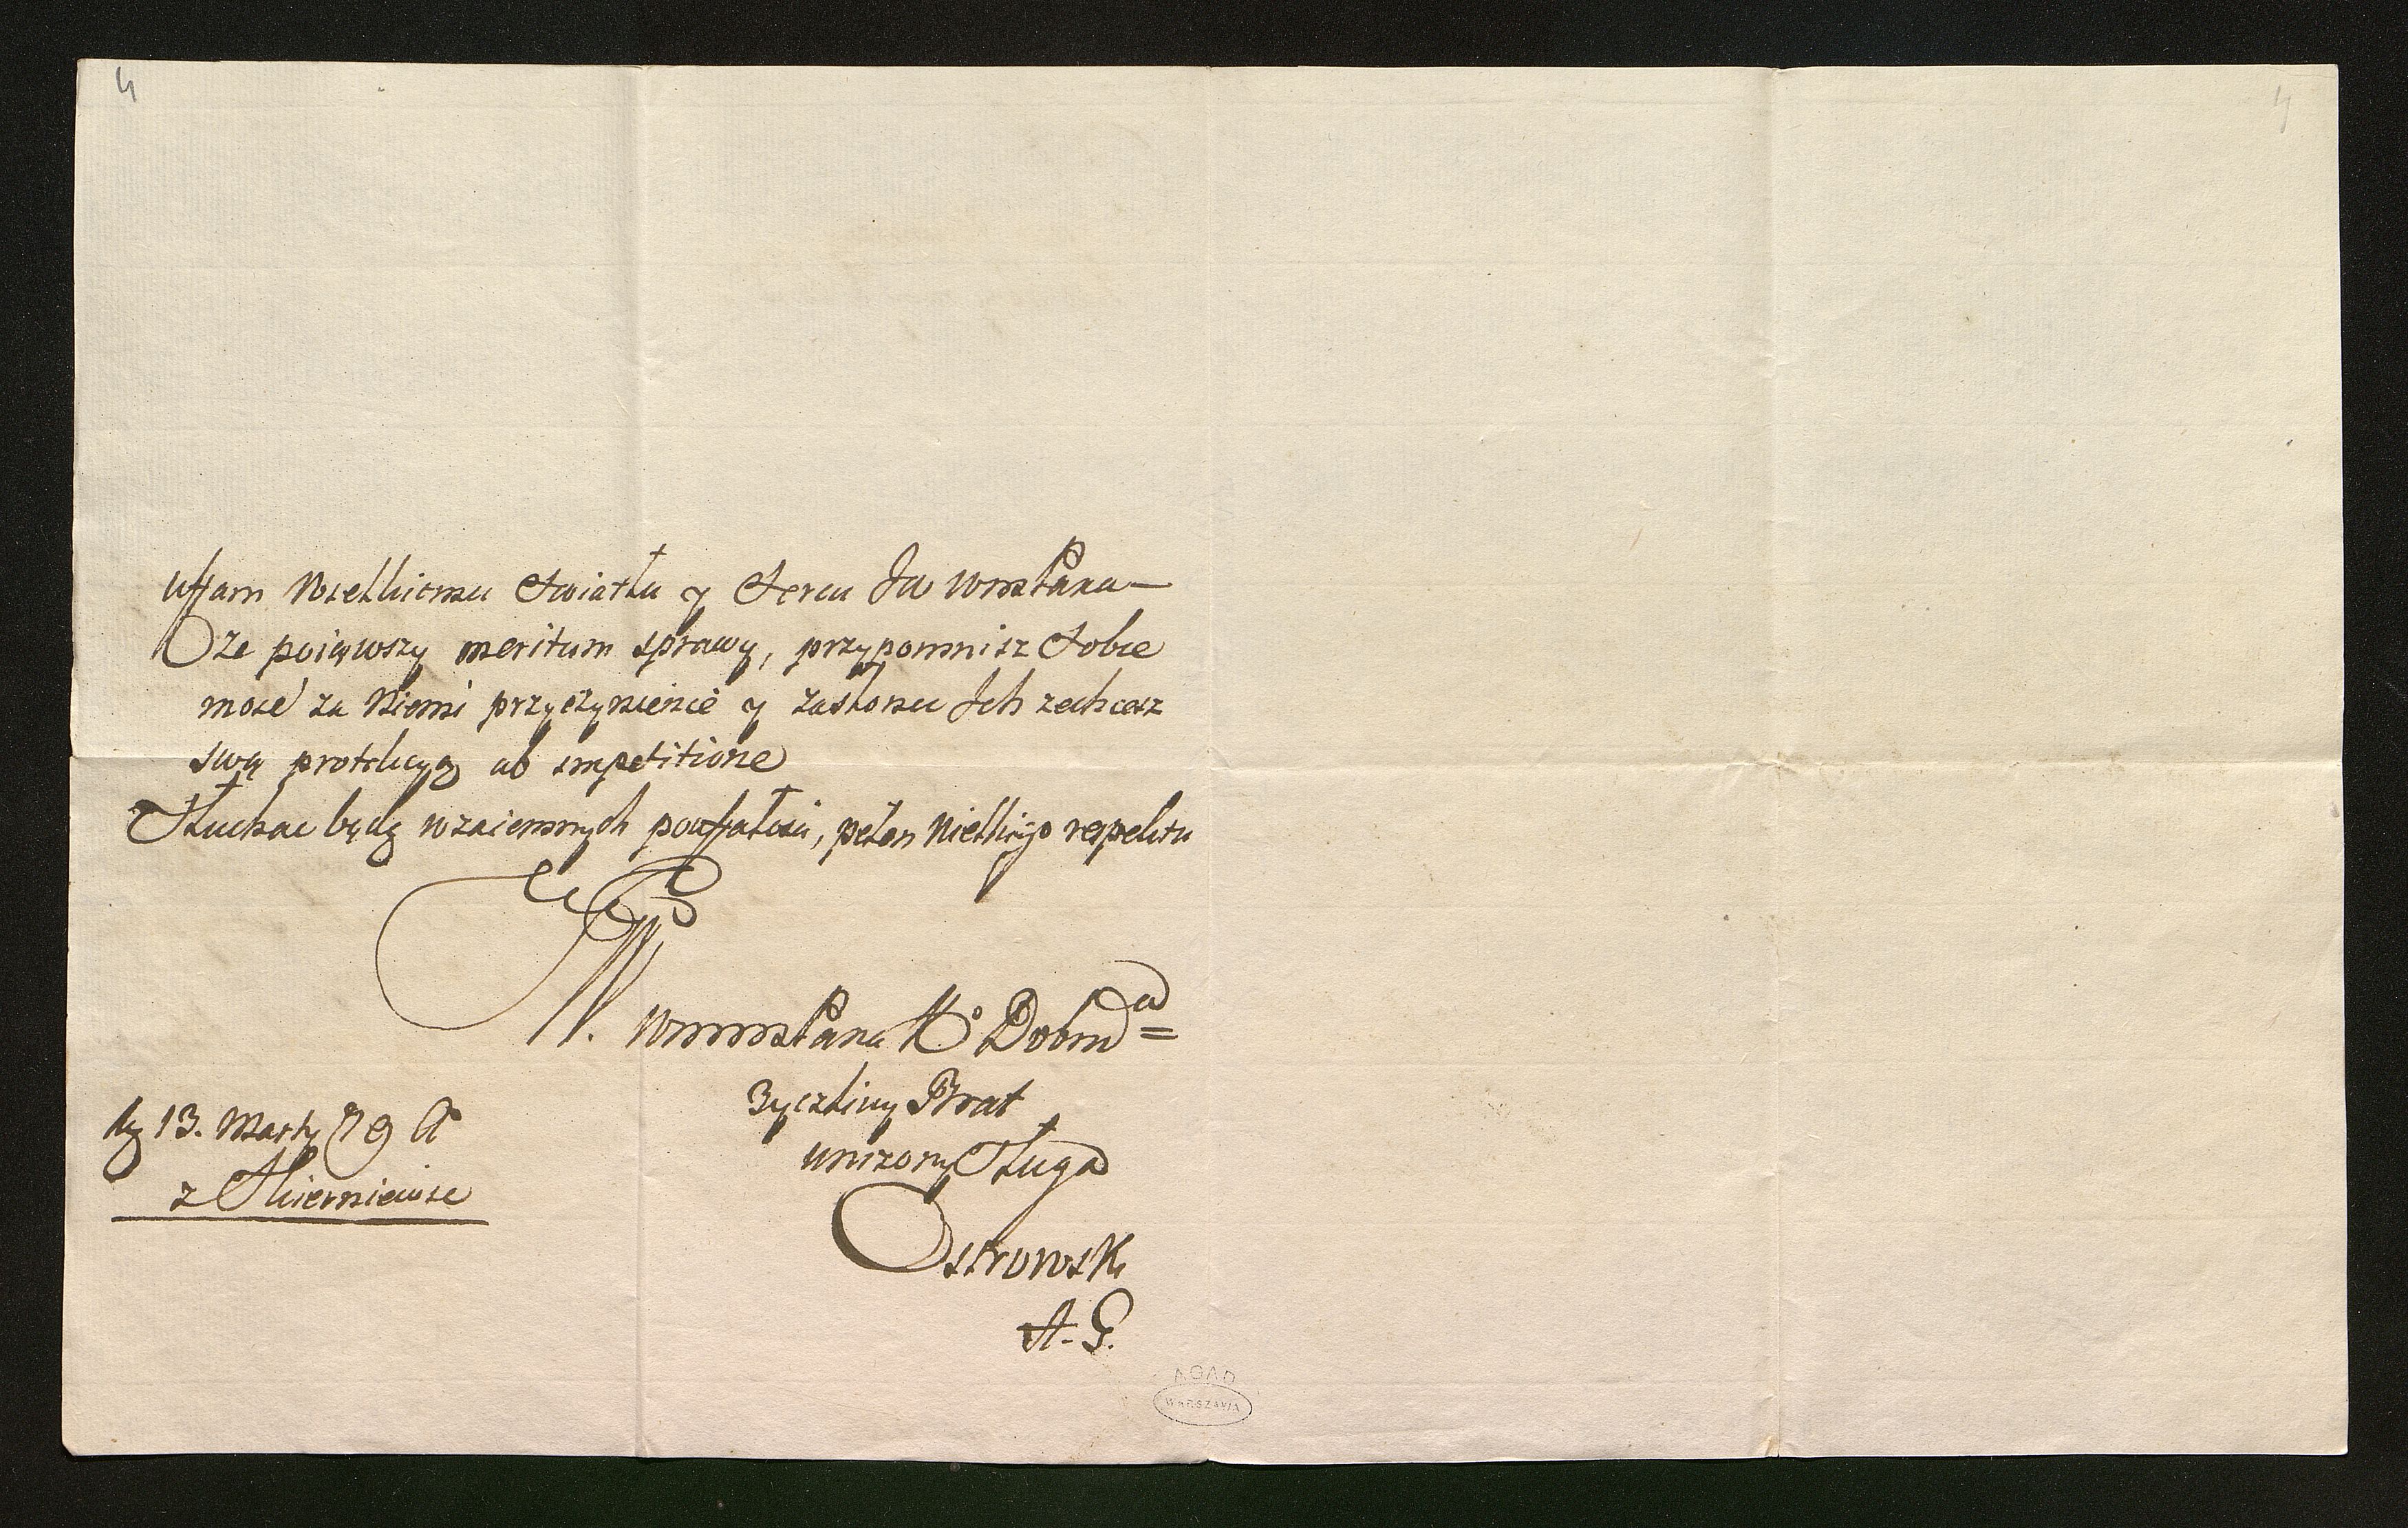 4
4
Uffam Wielkiemu Swiatłu y Sercu JW WmPana
że poiąwszy meritum sprawy, przypomnisz Sobie
moie za Niemi przyczynienie y zasłonu Ich zechcesz
swą protekcyą ab impetitione
Słuchac będę wzaiemnych pouffałosci, pełen Wielkiego respektu
JW. WmmPana Mo Dobrda
Zyczliwy Brat
uniżony Sługa
Ostrowski
A. G.
dy 13. Marty 79 A
z Skierniewic
AGAD
WARSZAWA